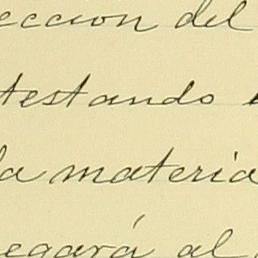 eccion del
testando
la materia
egará al